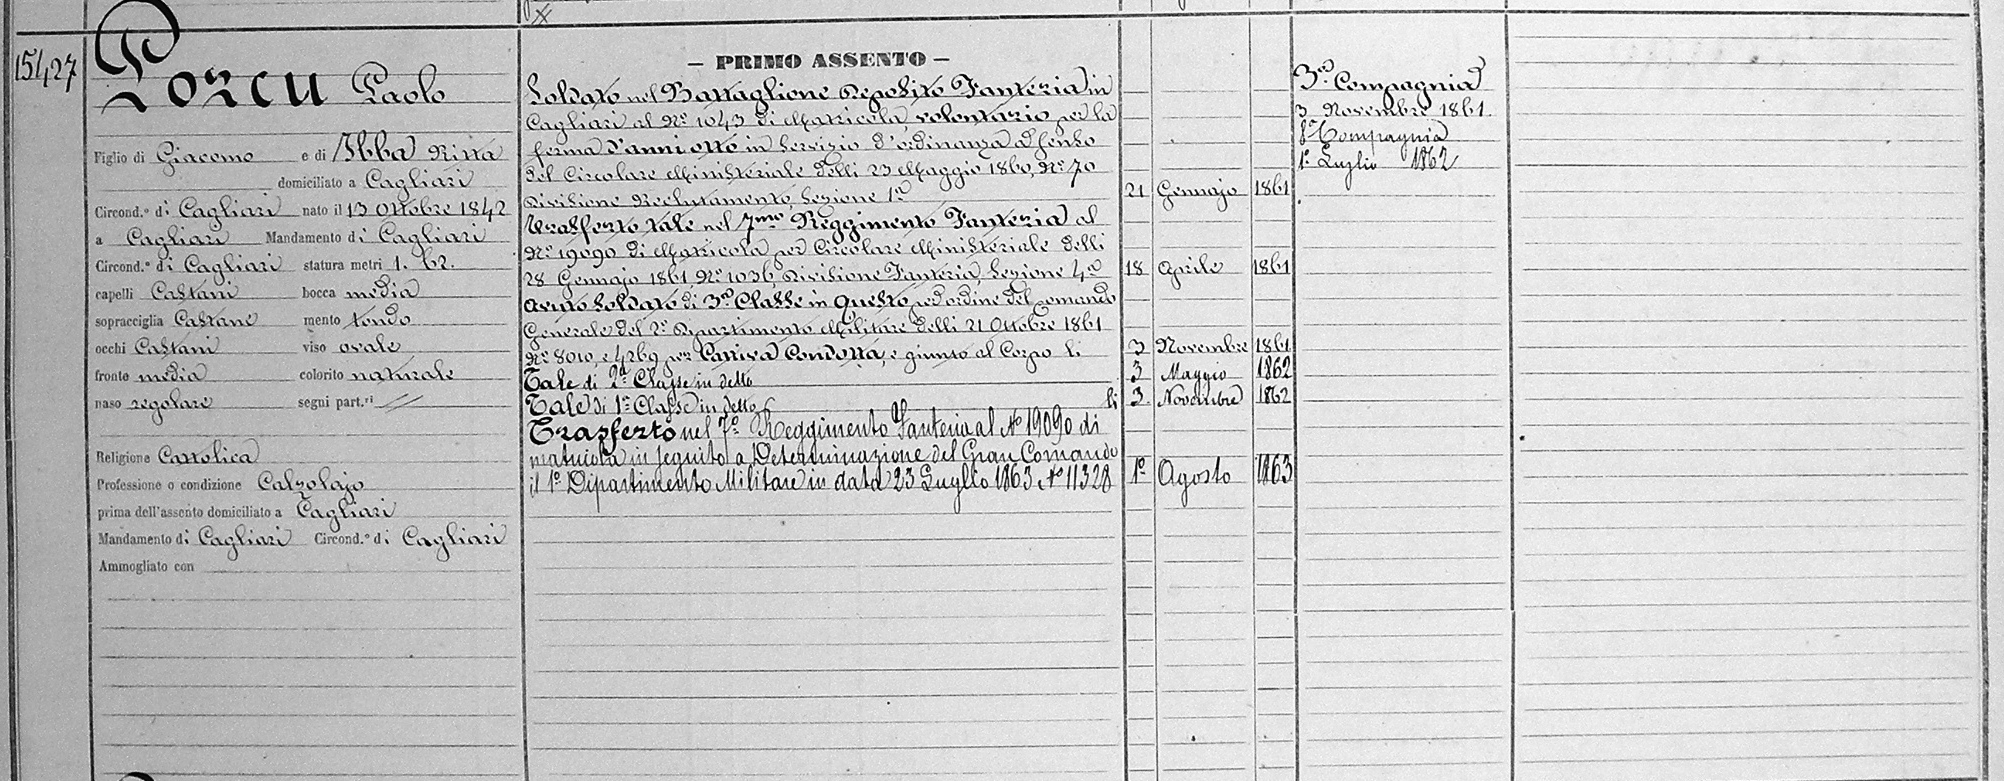 15427
Porcu Paolo
Figlio di Giacomo e di Ibba Ritta
domiciliato a Cagliari
Circond.º di Cagliari nato il 13 Ottobre 1842
a Cagliari Mandamento di Cagliari
Circond.º di Cagliari statura metri 1. 62.
capelli Castani bocca media
sopracciglia Castane mento tondo
occhi Castani viso ovale
fronte media colorito naturale
naso regolare segni part.ri //
Religione Cattolica
Professione o condizione Calzolajo
prima dell'assento domiciliato a Cagliari
Mandamento di Cagliari Circond.º di Cagliari
Ammogliato con
— PRIMO ASSENTO —
Soldato nel Battaglione Deposito Fanteria in
Cagliari al Nº 1043 di Matricola, volontario per la
ferma d'anni otto in servizio d'ordinanza a senso
del Circolare Ministeriale delli 23 Maggio 1860, Nº 70
Divisione Reclutamento, Sezione 1ª 21 Gennajo 1861
Trasferto tale nel 7mo Reggimento Fanteria al
Nº 19090 di Matricola per Circolare Ministeriale delli
28 Gennajo 1861, Nº 1036, Divisione Fanteria, Sezione 4ª 18 Aprile 1861
Avuto Soldato di 3ª Classe in questo, per ordine del Comando
Generale del 2º Dipartimento Militare delli 21 Ottobre 1861
Nº 8010, e 4269 per Cattiva Condotta, e giunto al Corpo li 3 Novembre 1861
Tale di 2ª Classe in detto 3 Maggio 1862
Tale di 1ª Classe in detto li 3 Novembre 1862
Trasferto nel 7º Reggimento Fanteria al Nº 19090 di
matricola in seguito a Determinazione del Gran Comando
il 1º Dipartimento Militare in data 23 Luglio 1863 Nº 11328 1º Agosto 1863
3ª Compagnia
3 Novembre 1861.
8ª Compagnia
1º Luglio 1862